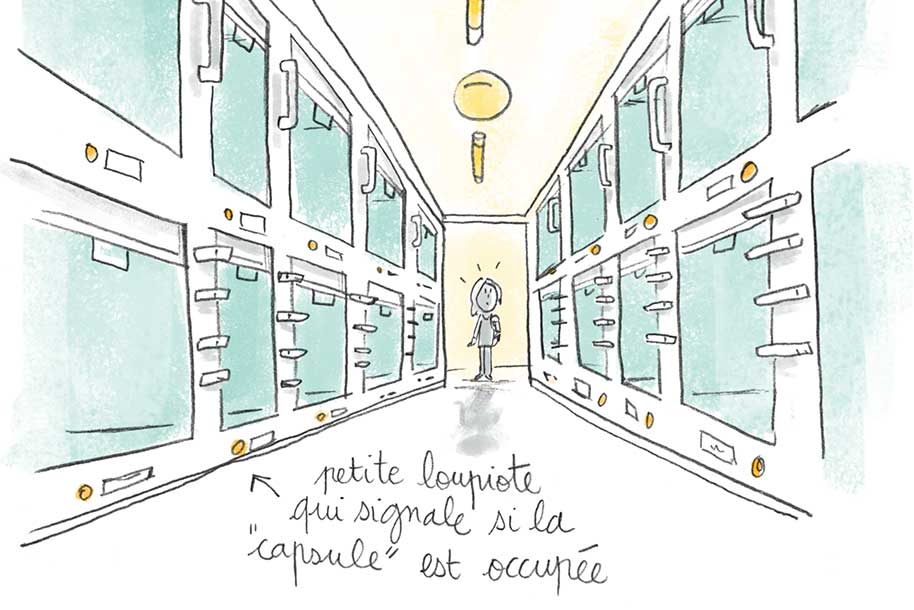 petite loupiote
qui signale si la
"capsule" est occupée